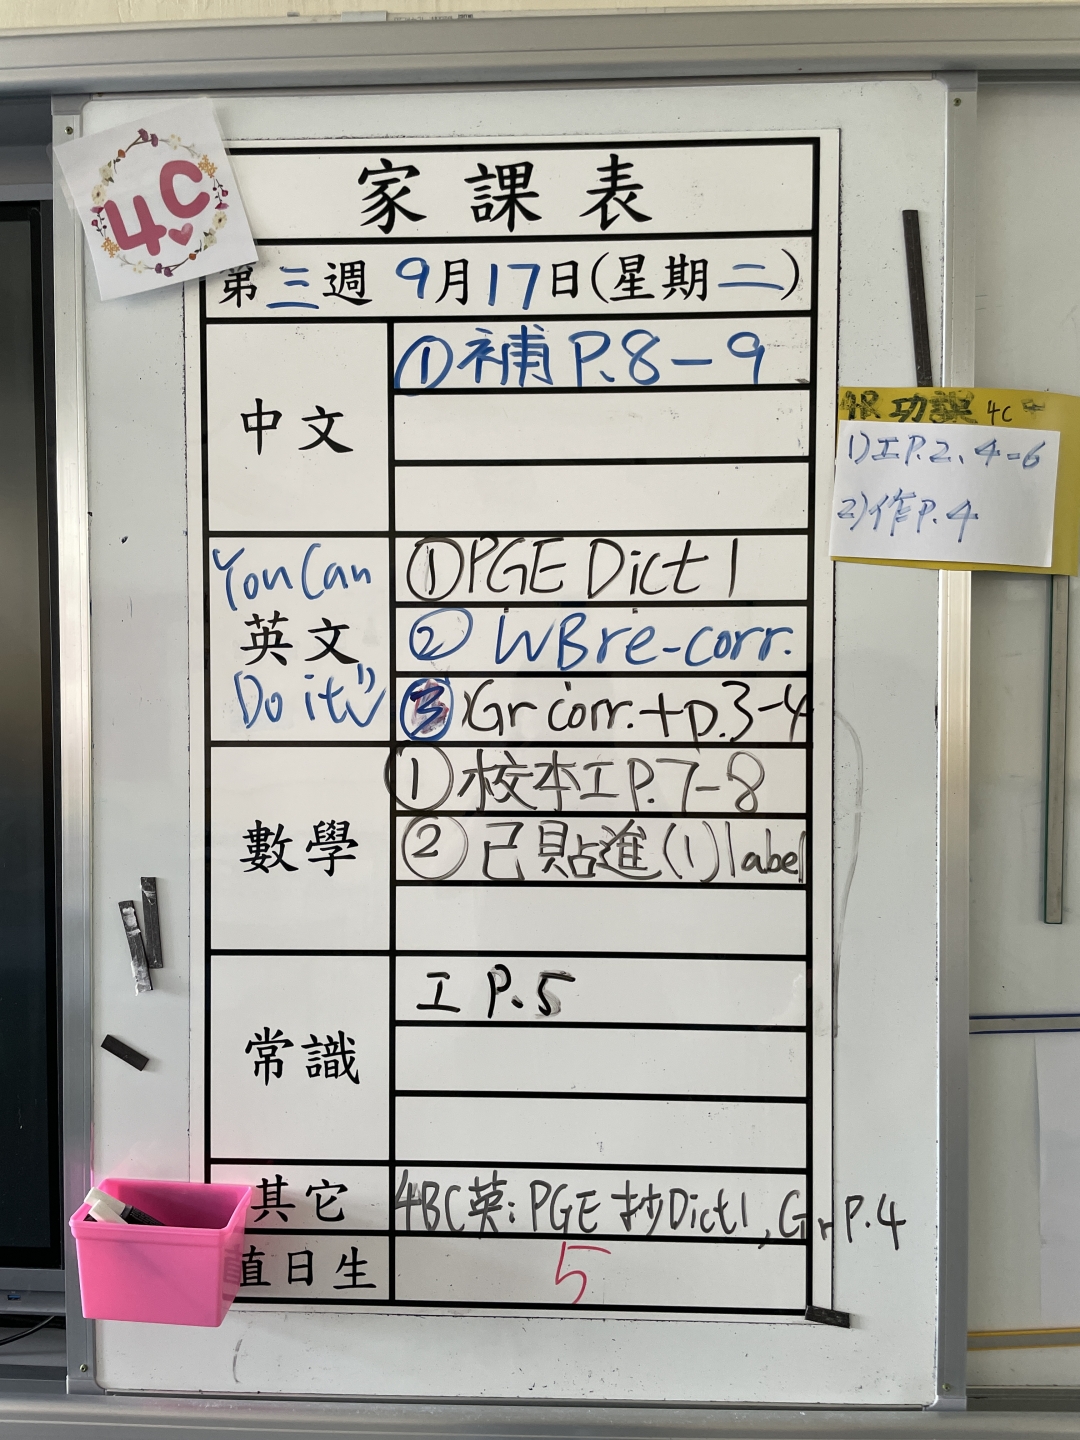 4C
家課表
第三週 9月17日(星期二)
中文
①補 P.8-9
You Can
英文
Do it
①PGE Dict 1
② WB re-corr.
③ Gr corr. + p.3-4
數學
① 校本工 P.7-8
② 己貼進(1)label
常識
工 P.5
其它
4BC英: PGE 抄Dict 1, Gr P.4
直日生
5
功課 4C
1)工P.2、4-6
2)作P.4